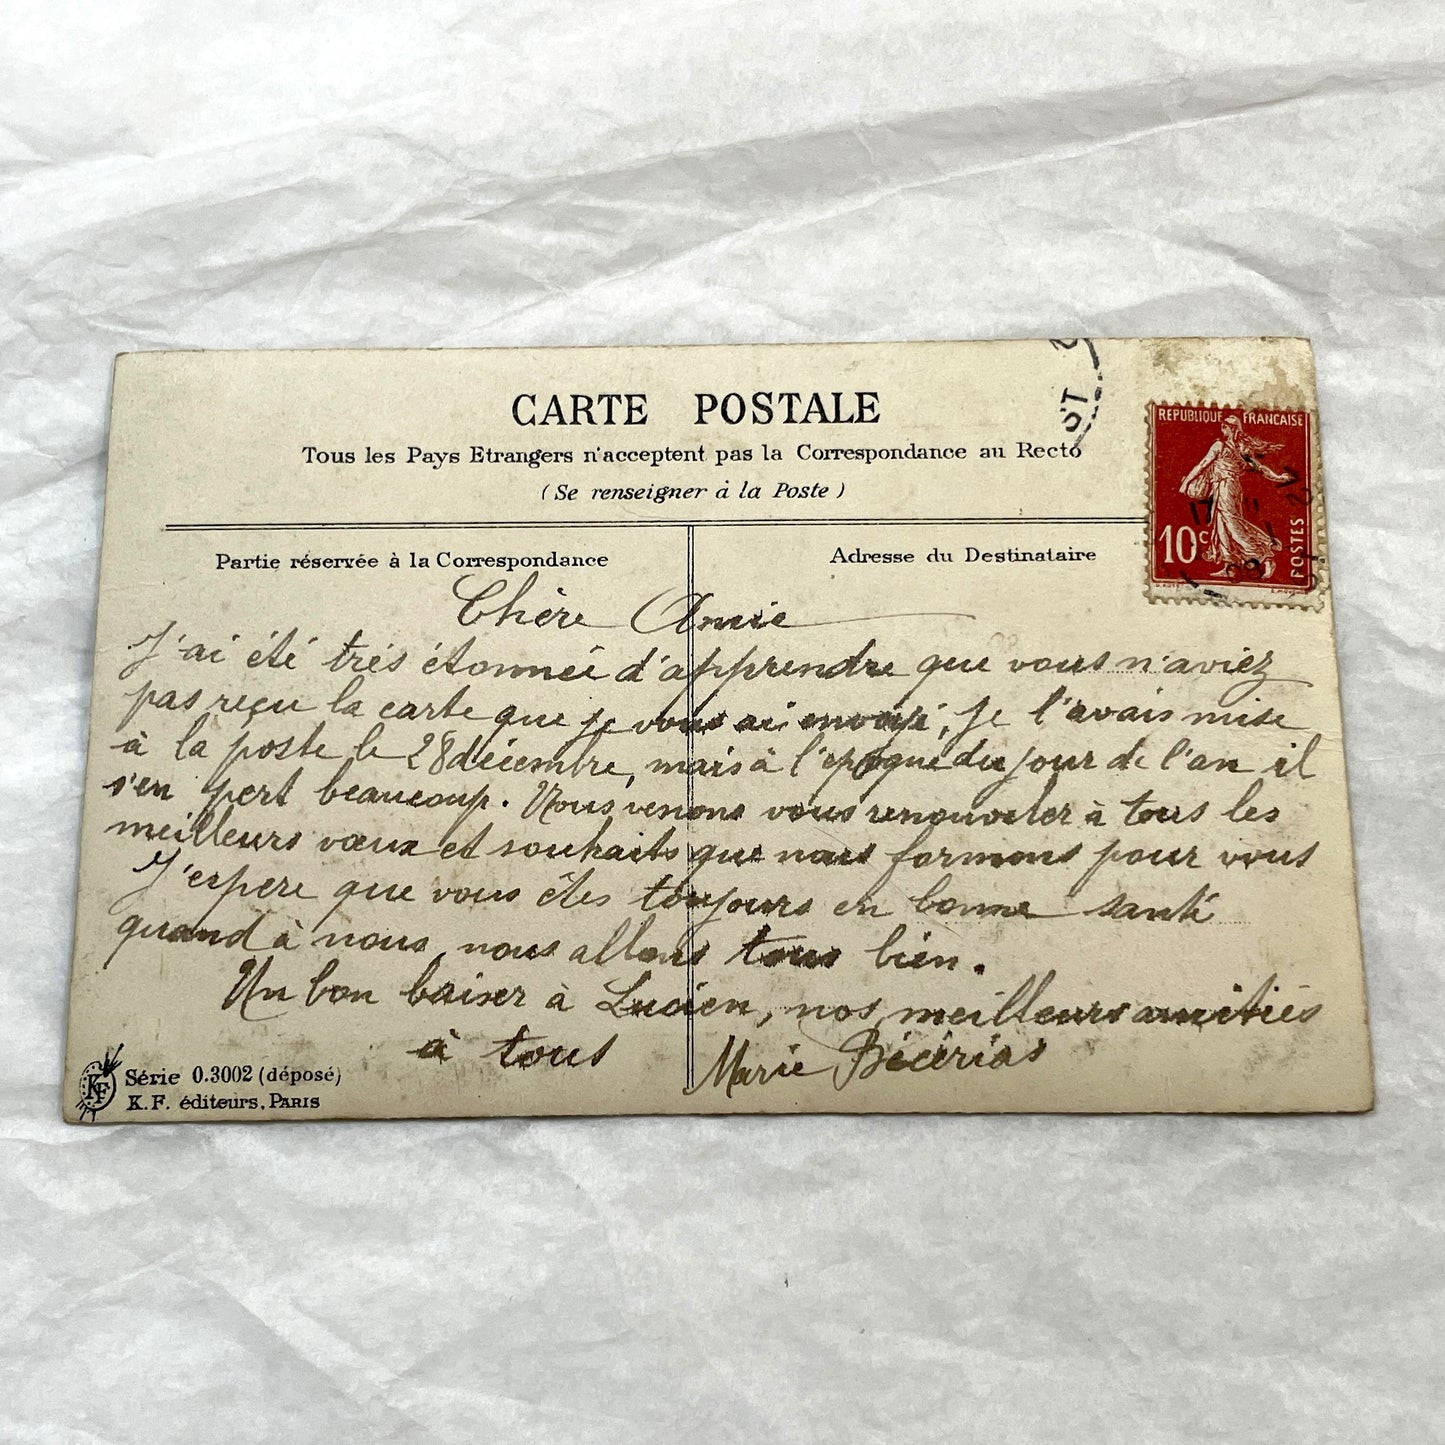 CARTE POSTALE
Tous les Pays Etrangers n'acceptent pas la Correspondance au Recto
(Se renseigner à la Poste)
REPUBLIQUE FRANCAISE
10c
POSTES
Partie réservée à la Correspondance
Adresse du Destinataire
Chère Amie
J'ai été très étonnée d'apprendre que vous n'aviez
pas reçu la carte que je vous ai envoyé, je l'avais mise
à la poste le 28 décembre, mais à l'époque du jour de l'an il
s'en pert beaucoup. Nous venons vous renouveler à tous les
meilleurs vœux et souhaits que nous formons pour vous
J'espere que vous êtes toujours en bonne santé
quand à nous nous allons tous bien.
Un bon baiser à Lucien, nos meilleurs amitiés
à tous Marie
KF
Série 0.3002 (déposé)
K.F. éditeurs, PARIS